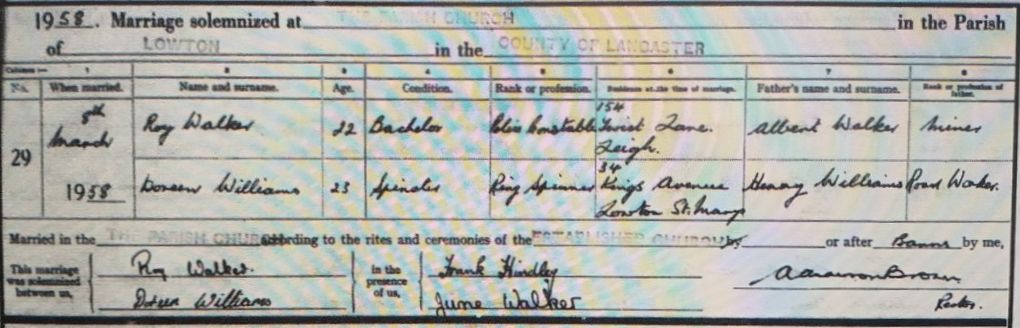 1958. Marriage solemnized at THE PARISH CHURCH in the Parish
of LOWTON in the COUNTY OF LANCASTER
Columns:— 1 2 3 4 5 6 7 8
No. When married. Name and surname. Age. Condition. Rank or profession. Residence at the time of marriage. Father's name and surname. Rank or profession of father.
29 8th March 1958
Roy Walker 22 Bachelor Police Constable 154 Twist Lane. Leigh. Albert Walker Miner
Doreen Williams 23 Spinster Ring Spinner 34 Kings Avenue Lowton St. Marys Henry Williams Road Worker.
Married in the THE PARISH CHURCH according to the rites and ceremonies of the ESTABLISHED CHURCH by or after Banns by me,
This marriage was solemnized between us, Roy Walker. Doreen Williams
in the presence of us, Frank Hindley June Walker
Brown
Rector.